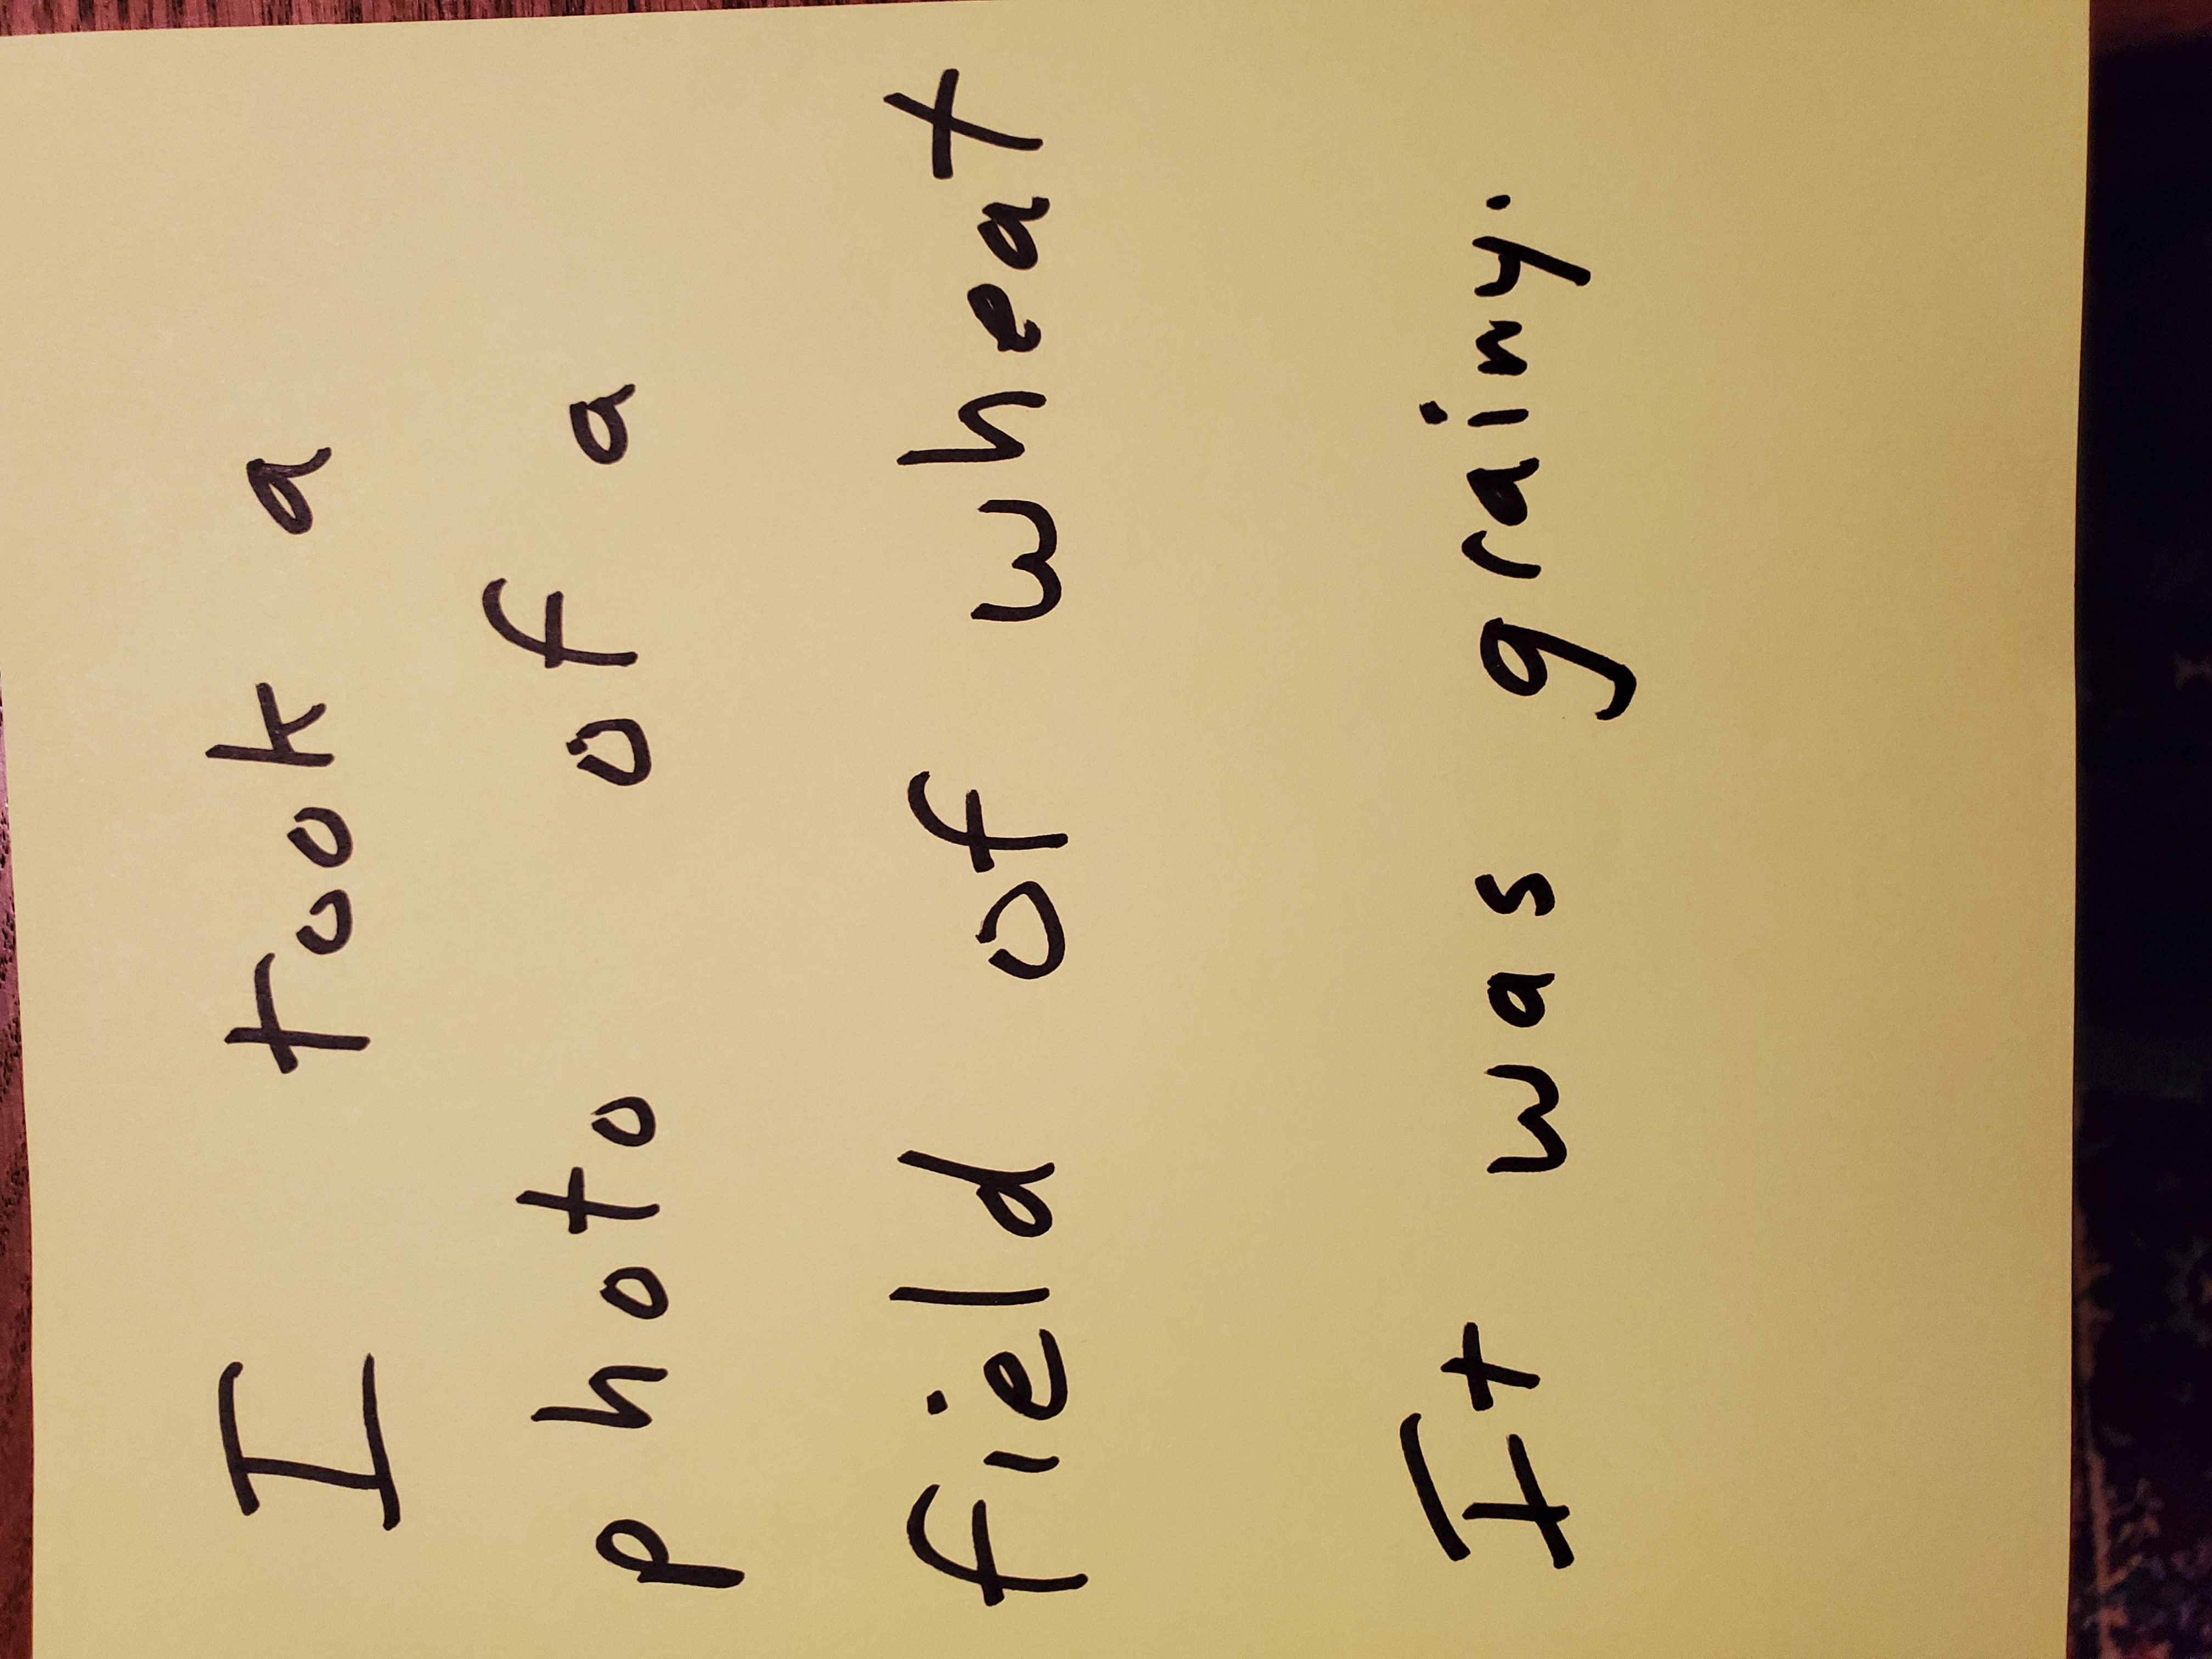 I took a
photo of a
field of wheat
It was grainy.